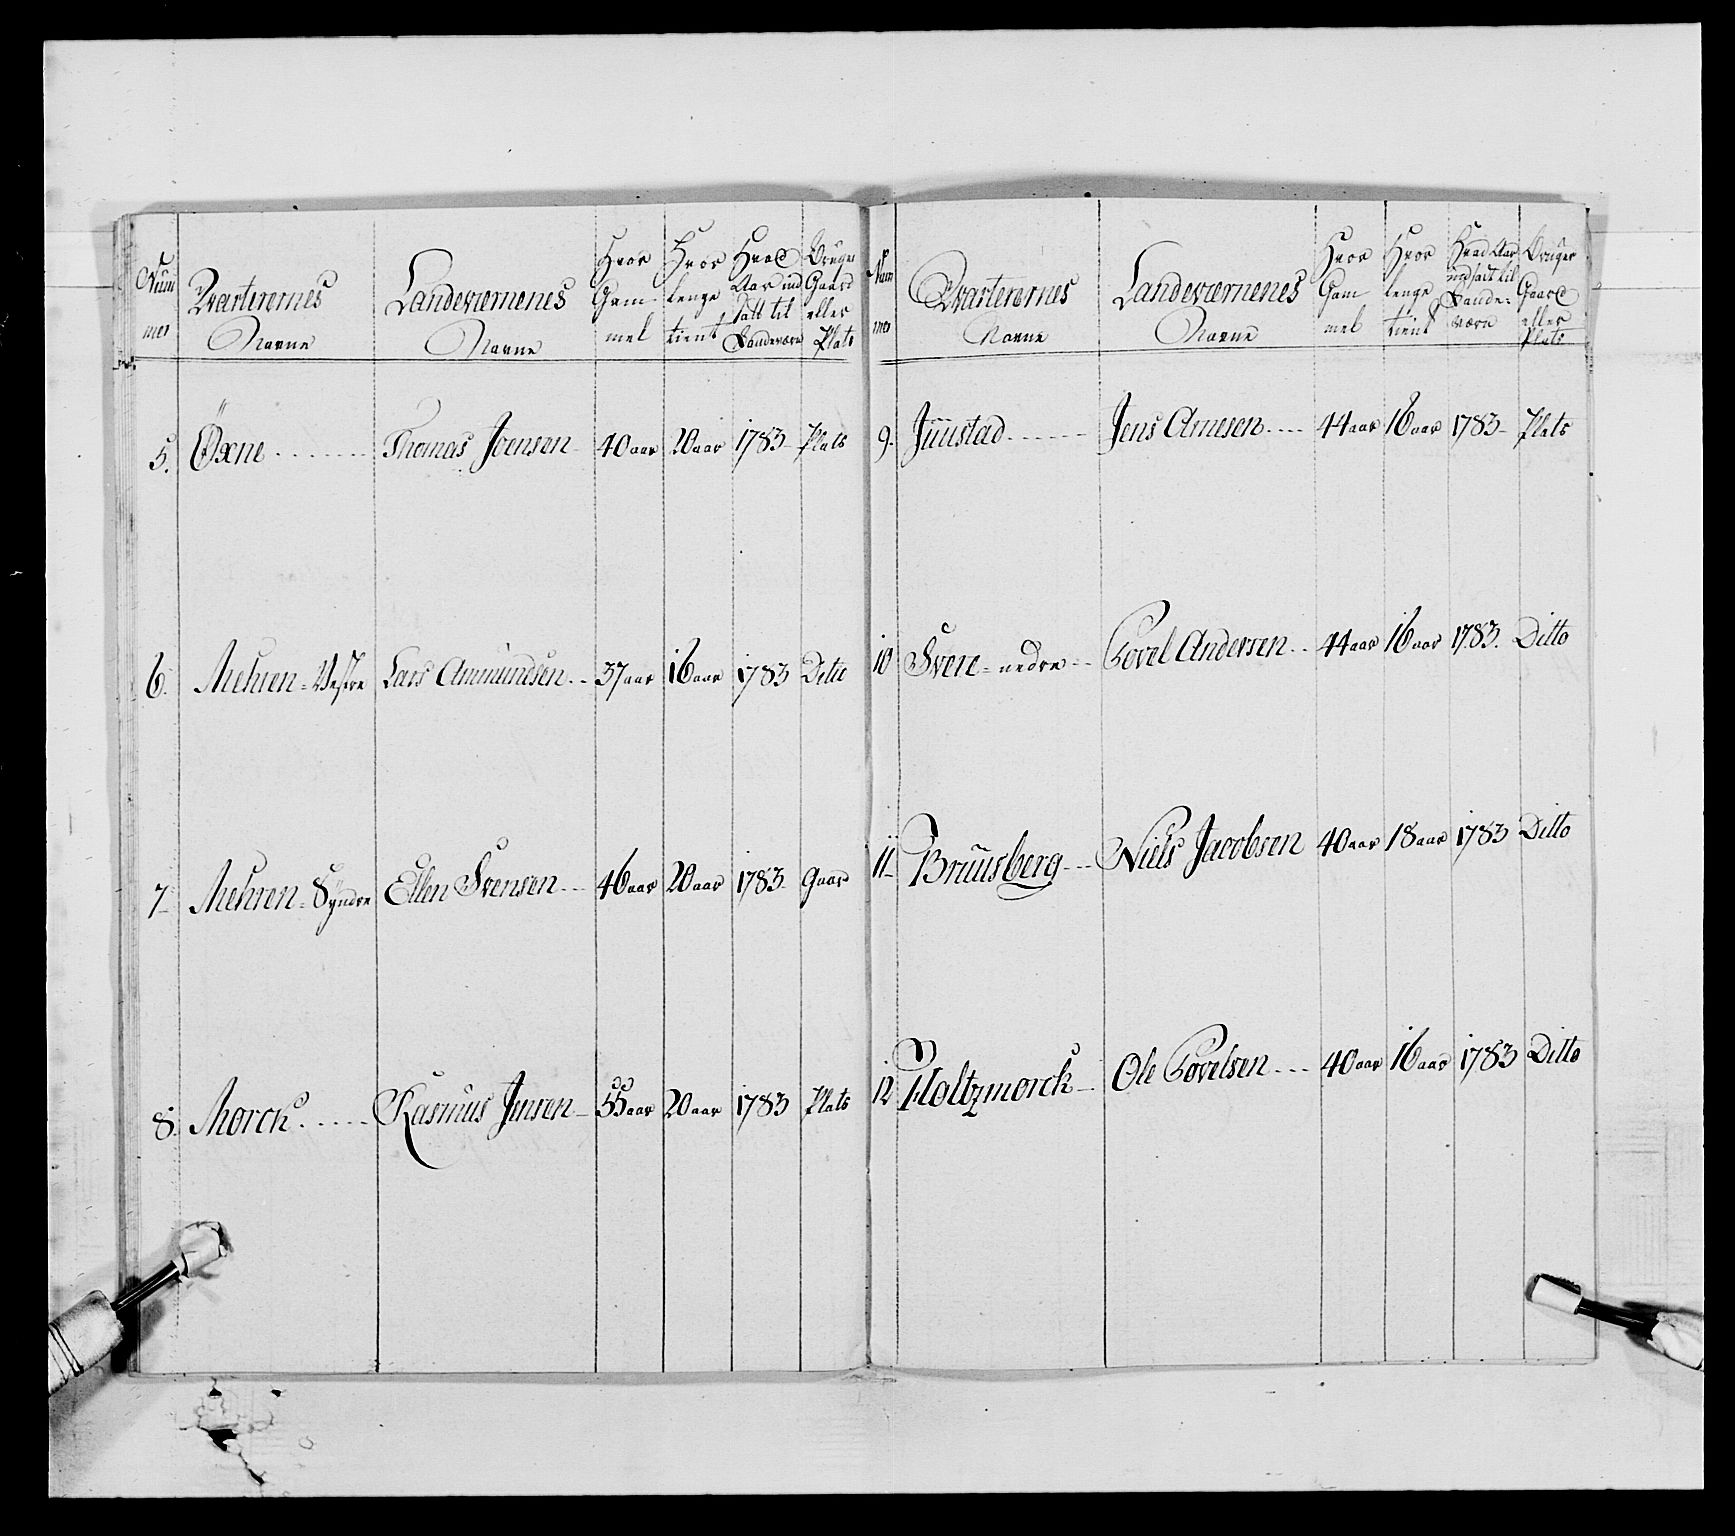 Num
mer
Qvarterernes
Navne
Landeværnenes
Navne
Hvor
Gam-
mel
Hvor
lenge
tient
Hvad
Aar ind
satt til
Landeværn
Bruger
Gaard
eller
Plats
5. Öxne Thomas Joensen 40 aar 20 aar 1783 Plats
6. Mehren-Vestre Lars Ammundsen 37 aar 16 aar 1783 Ditto
7 Mehren-Syndre Ellen Svensen 46 aar 20 aar 1783 Gaar
8. Morck Rasmus Jensen 55 aar 20 aar 1783 Plats
Num
mer
Qvarterernes
Navne
Landeværnenes
Navne
Hvor
Gam
mel
Hvor
lenge
tient
Hvad Aar
indsadt til
Lande-
værn
Bruger
Gaard
eller
Plats
9. Juustad Jens Arnesen 44 aar 16 aar 1783 Plats
10 Svere-nedre Povel Andersen 44 aar 16 aar 1783. Ditto
11 Bruusberg Niels Jacobsen 40 aar 18 aar 1783 Ditto
12 Holtzmorck Ole Povelsen 40 aar 16 aar 1783 Ditto